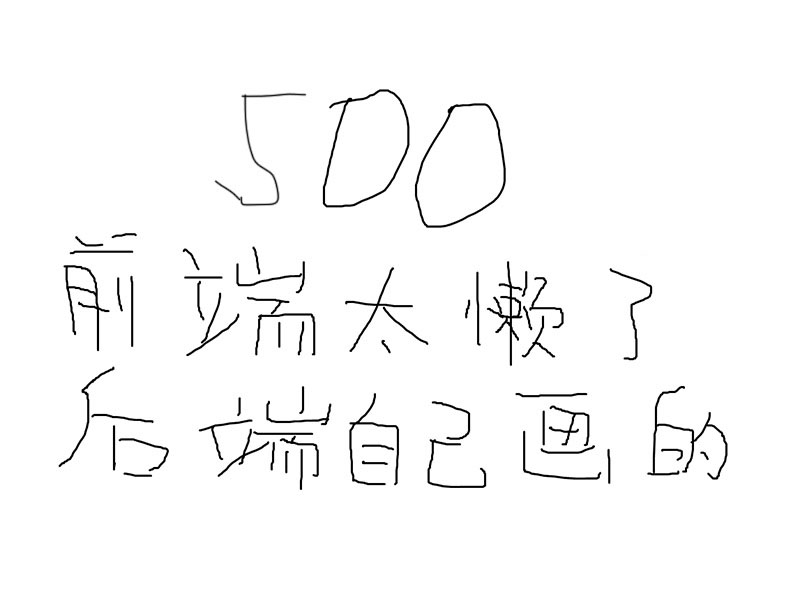 500
前端太懒了
后端自己画的